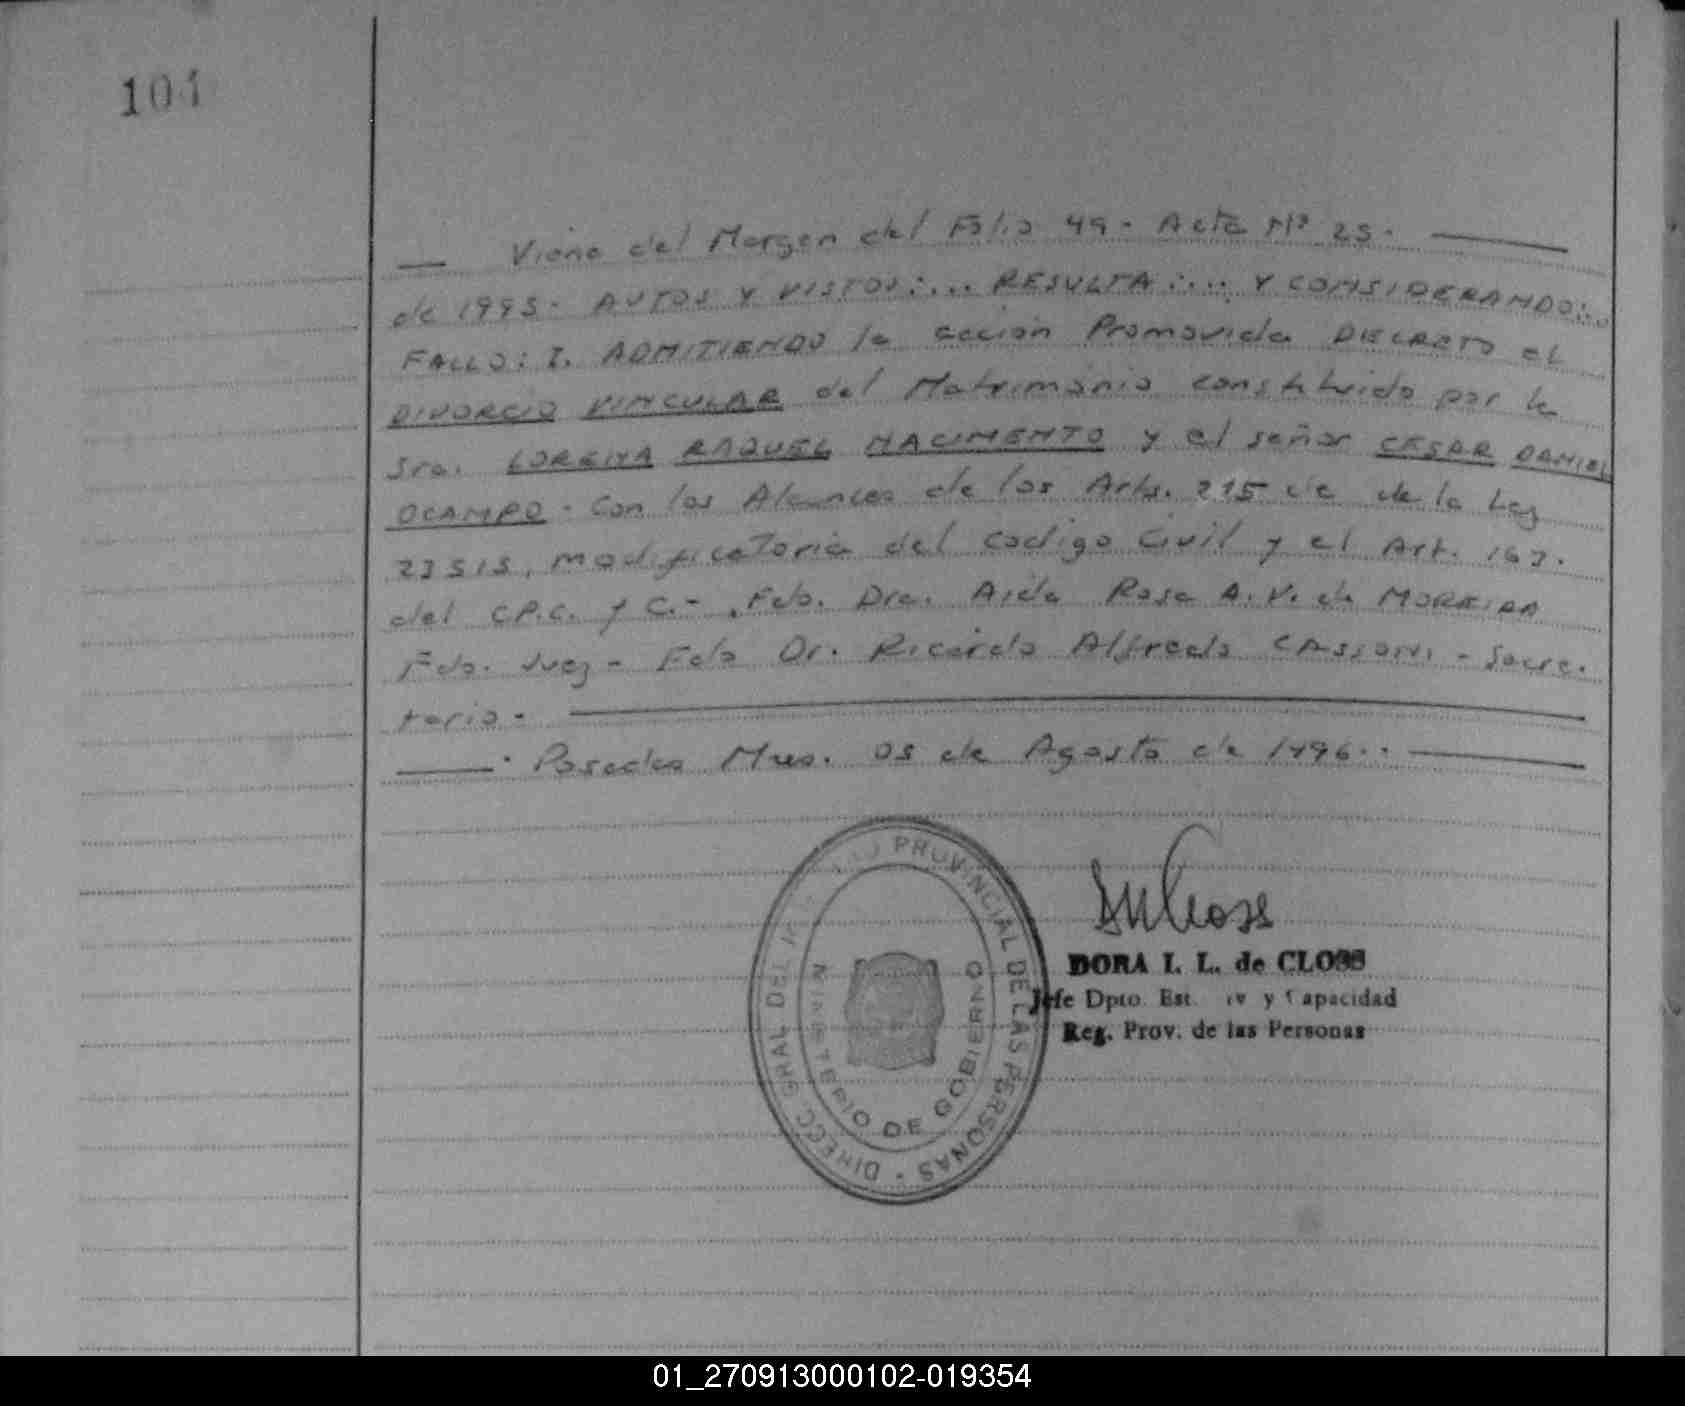 104
Viene del Margen del Folio 49 - Acta Nº 25.
de 1995. AUTOS Y VISTOS:... RESULTA:... Y CONSIDERANDO:..
FALLO: I. ADMITIENDO la acción Promovida DECRETO el
DIVORCIO VINCULAR del Matrimonio constituido por la
Sra. LORENA RAQUEL NACIMENTO y el señor CESAR DANIEL
OCAMPO - Con los Alcances de los Arts. 215 de la Ley
23515, modificatoria del Codigo Civil y el Art. 163.
del C.P.C. y C.- Fdo. Dra. Aida Rosa A.V. de MOREIRA
Fdo. Juez - Fdo Dr. Ricardo Alfredo CASSONI - Secre-
tario -
Posadas Mnes. 05 de Agosto de 1996.
DIRECC GRAL DEL PROVINCIAL DE LAS PERSONAS
MINISTERIO DE GOBIERNO
DORA I. L. de CLOSS
Jefe Dpto. Est. y Capacidad
Reg. Prov. de las Personas
01_270913000102-019354